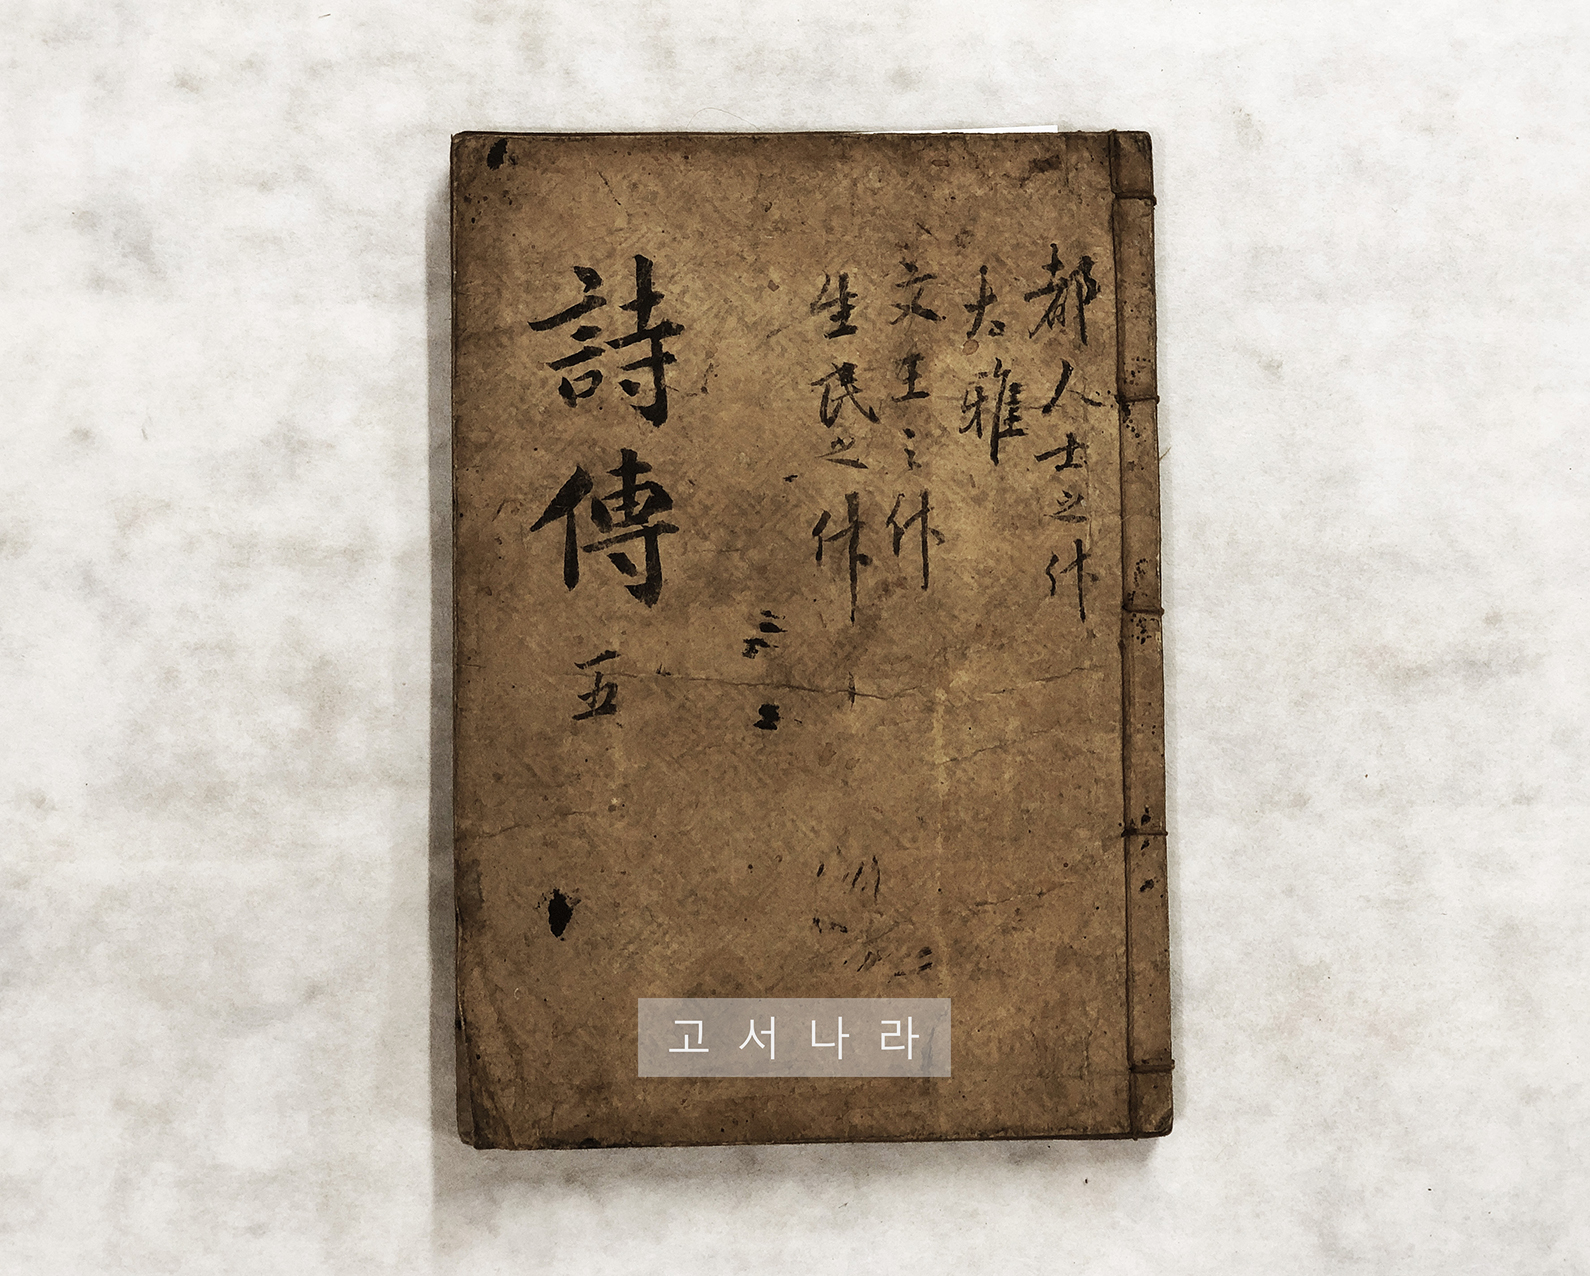 都人士之什
大雅
文王之什
生民之什
詩傳 五
고서나라